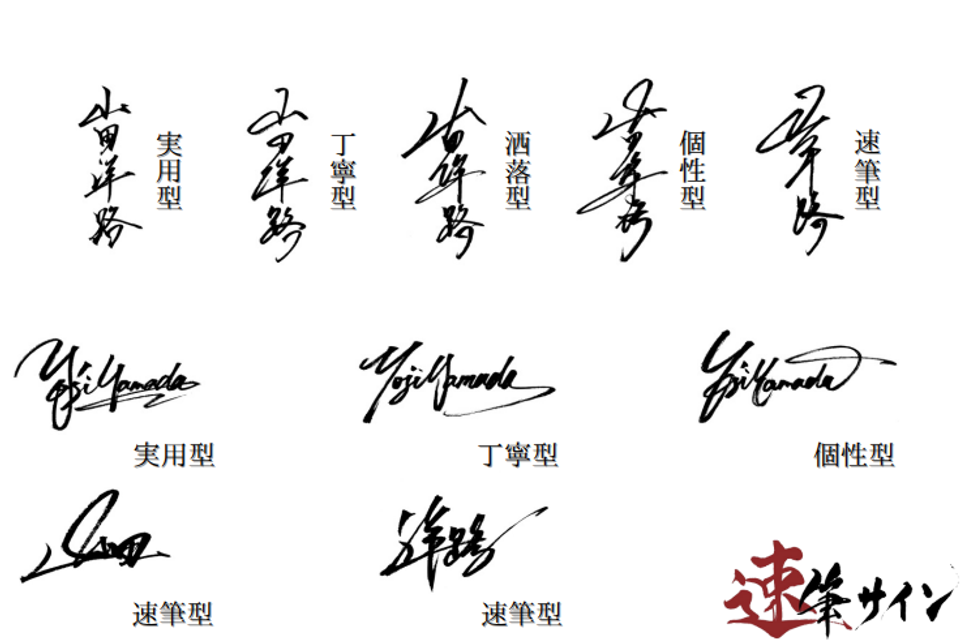 山田洋路
実用型
山田洋路
丁寧型
山田洋路
洒落型
山田洋路
個性型
山田洋路
速筆型
Yoji Yamada
実用型
Yoji Yamada
丁寧型
Yoji Yamada
個性型
山田
速筆型
洋路
速筆型
速筆サイン